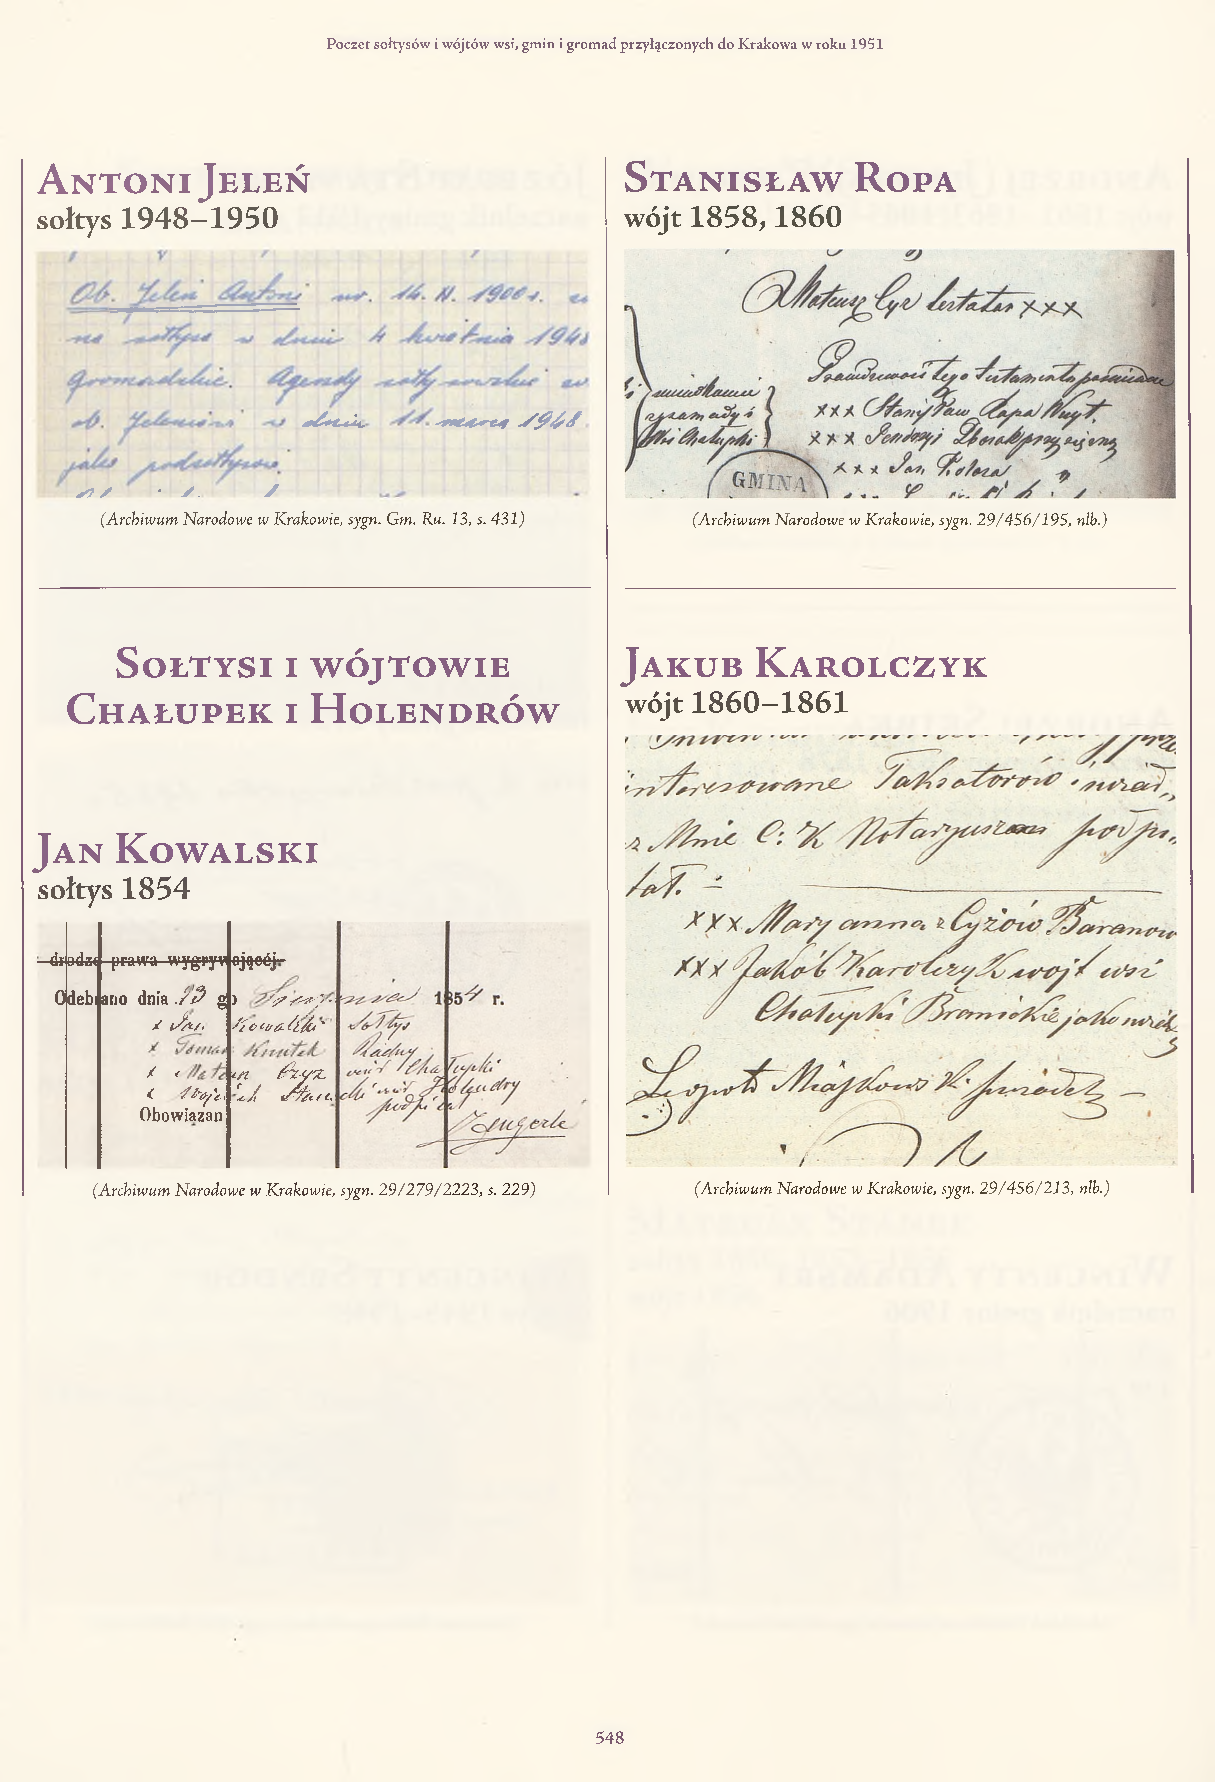 Poczet sołtysów i wójtów wsi, gmin i gromad przyłączonych do Krakowa w roku 1951
Antoni Jeleń
sołtys 1948–1950
Ob. Jeleń Antoni ur. 14. II. 1900 r.
na sołtysa w dniu 4 kwietnia 1948
Gromadzkie. Agendy sołtysowskie
ob. Jeleniowi w dniu 11. marca 1948
jako podsołtysowi.
(Archiwum Narodowe w Krakowie, sygn. Gm. Ru. 13, s. 431)
Sołtysi i wójtowie
Chałupek i Holendrów
Jan Kowalski
sołtys 1854
drodze prawa wygrywającéj.
Odebrano dnia 13 go Sierpnia 1854 r.
x Jan Kowalski Sołtys
x Tomasz Radny
x Mateusz Czyz Chałupki
x Wojciech Holendry
podpisał
Obowiązan
(Archiwum Narodowe w Krakowie, sygn. 29/279/2223, s. 229)
Stanisław Ropa
wójt 1858, 1860
Mateusz Cyz testator xxx
Prawdziwość tego testamentu poświadcza
xxx Stanisław Ropa Wuyt.
xxx Jendrzyi przysiężny
xxx Jan "
Wsi Chałupki
GMINA
(Archiwum Narodowe w Krakowie, sygn. 29/456/195, nlb.)
Jakub Karolczyk
wójt 1860–1861
interesowane Taksatorów i
z Mnie C: K Notaryuszem podpi„
sał. –
xxx Maryanna z Cyżów Baranow
xxx Jakób Karolczyk wojt wsi
Chałupki Branickie jako
Leopold świadek –
(Archiwum Narodowe w Krakowie, sygn. 29/456/213, nlb.)
548